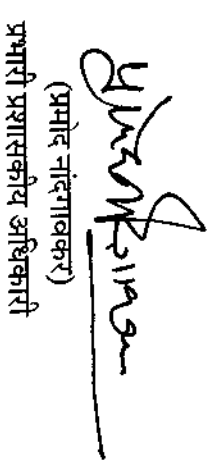 (प्रमोद नांदगावकर)
प्रभारी प्रशासकीय अधिकारी